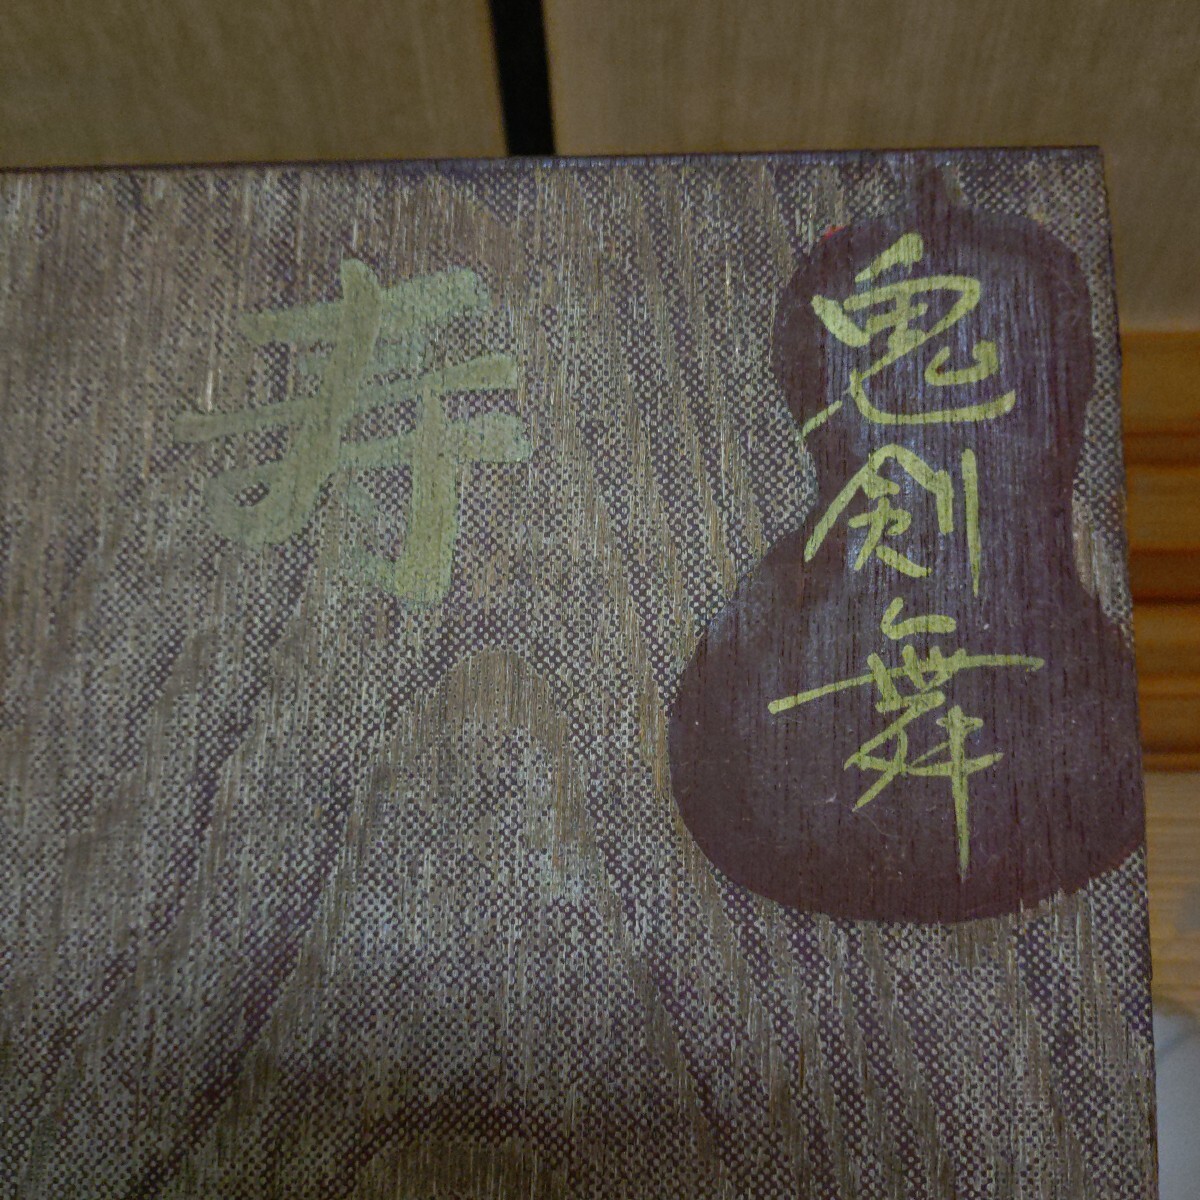 鬼剣舞
寿